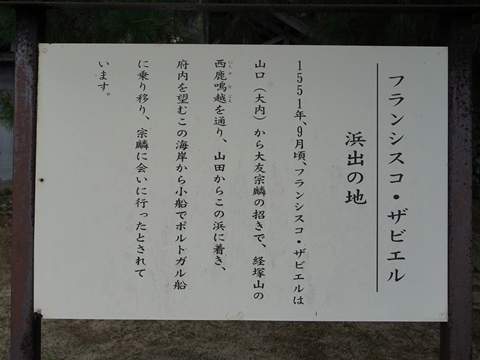 フランシスコ・ザビエル
浜出の地
1551年、9月頃、フランシスコ・ザビエルは
山口（大内）から大友宗麟の招きで、経塚山の
西鹿鳴越を通り、山田からこの浜に着き、
府内を望むこの海岸から小船でポルトガル船
に乗り移り、宗麟に会いに行ったとされて
います。